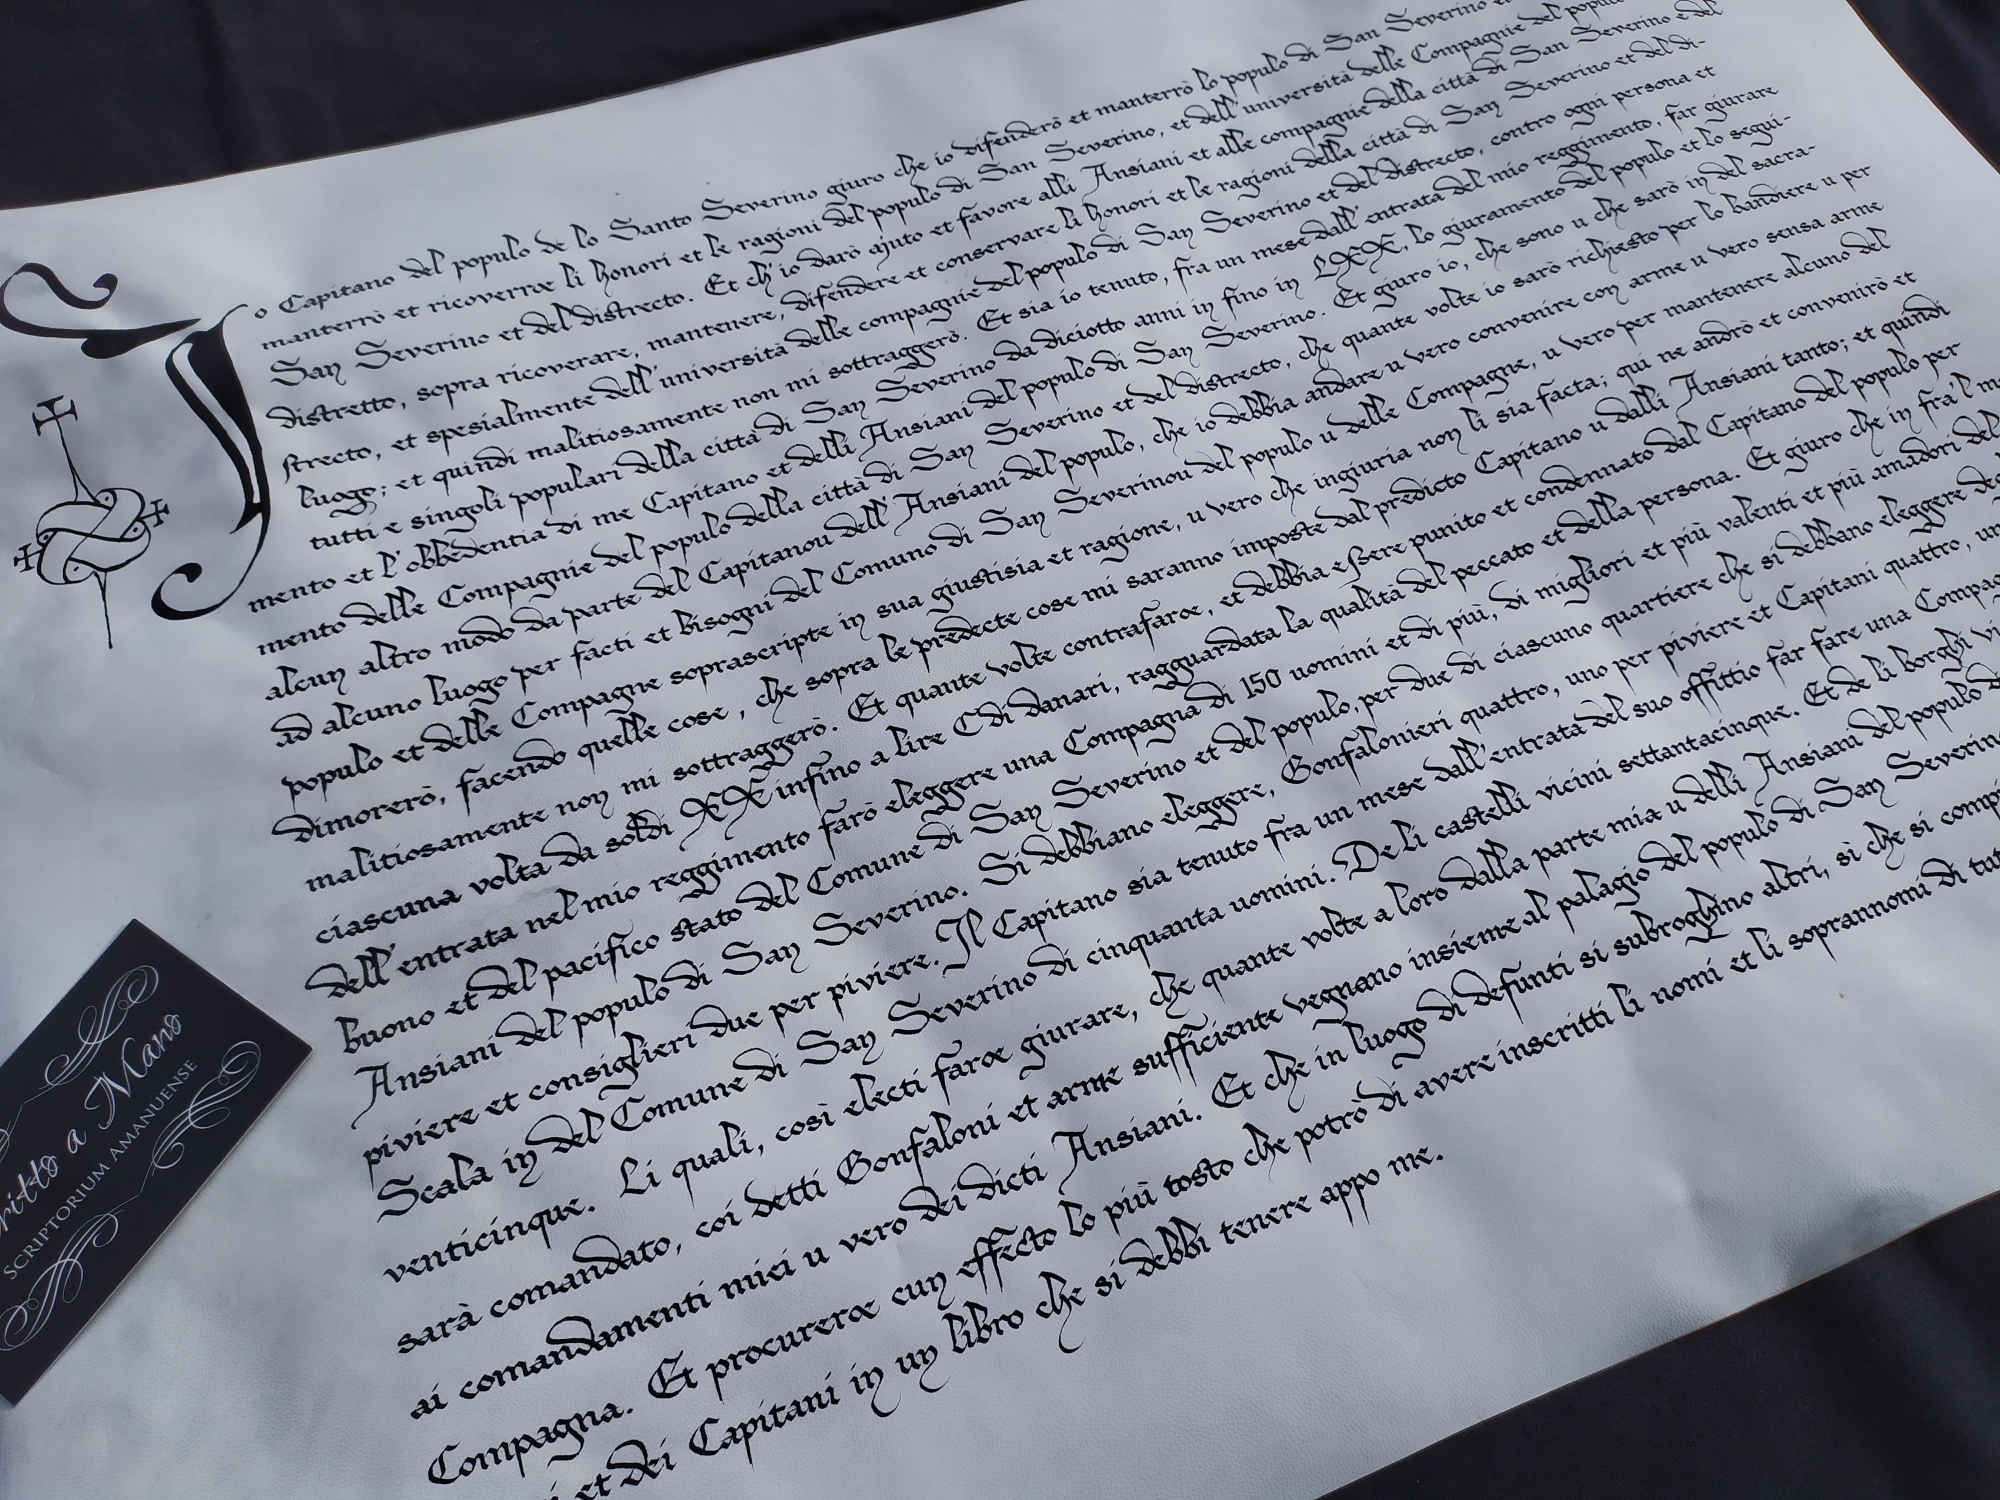 Io Capitano del populo de lo Santo Severino giuro che io difenderò et manterrò lo populo di San Severino et
manterrò et ricoverroe li honori et le ragioni del populo di San Severino, et dell'università delle Compagnie del populo
San Severino et del distrecto. Et ch'io darò ajuto et favore alli Ansiani et alle compagnie della città di San Severino e del
distretto, sopra ricoverare, mantenere, difendere et conservare li honori et le ragioni della città di San Severino et del di-
strecto, et spesialmente dell'università delle compagnie del populo di San Severino et del distrecto, contro ogni persona et
luogo; et quindi malitiosamente non mi sottraggerò. Et sia io tenuto, fra un mese dall'entrata del mio reggimento, far giurare
tutti e singoli populari della città di San Severino da diciotto anni in fino in LXX, lo giuramento del populo et lo segui-
mento et l'obbedentia di me Capitano et delli Ansiani del populo di San Severino. Et giuro io, che sono u che sarò in del sacra-
mento delle Compagnie del populo della città di San Severino et del distrecto, che quante volte io sarò richiesto per lo bandiere u per
alcun altro modo da parte del Capitanou dell'Ansiani del populo, che io debbia andare u vero convenire con arme u vero sensa arme
ad alcuno luogo per facti et bisogni del Comuno di San Severinou del populo u delle Compagne, u vero per mantenere alcuno del
populo et delle Compagne soprascripte in sua giustisia et ragione, u vero che ingiuria non li sia facta; qui ne andrò et convenirò et
dimorerò, facendo quelle cose, che sopra le predecte cose mi saranno imposte dal predicto Capitano u dalli Ansiani tanto; et quindi
malitiosamente non mi sottraggerò. Et quante volte contrafaroe, et debbia essere punito et condennato dal Capitano del populo per
ciascuna volta da soldi XX infino a lire C di danari, ragguardata la qualità del peccato et della persona. Et giuro che in fra'l
dell'entrata nel mio reggimento farò eleggere una Compagna di 150 uomini et di più, di migliori et più valenti et più amadori del
buono et del pacifico stato del Comune di San Severino et del populo, per due di ciascuno quartiere che si debbano eleggere
Ansiani del populo di San Severino. Si debbiano eleggere, Gonfalonieri quattro, uno per piviere et Capitani quattro,
piviere et consiglieri due per piviere. Il Capitano sia tenuto fra un mese dall'entrata del suo offittio far fare una
Scala in del Comune di San Severino di cinquanta uomini. De li castelli vicini settantacinque. Et de li borghi
venticinque. Li quali, così electi faroe giurare, che quante volte a loro dalla parte mia u delli Ansiani del populo
sarà comandato, coi detti Gonfaloni et arme sufficiente vegnano insieme al palagio del populo di San
ai comandamenti miei u vero dei dicti Ansiani. Et che in luogo di defunti si subroghino altri, sì che si
Compagna. Et procureroe cun effecto lo più tosto che potrò di avere inscritti li nomi et li soprannomi di
et dei Capitani in un libro che si debbi tenere appo me.
a Mano
SCRIPTORIUM AMANUENSE